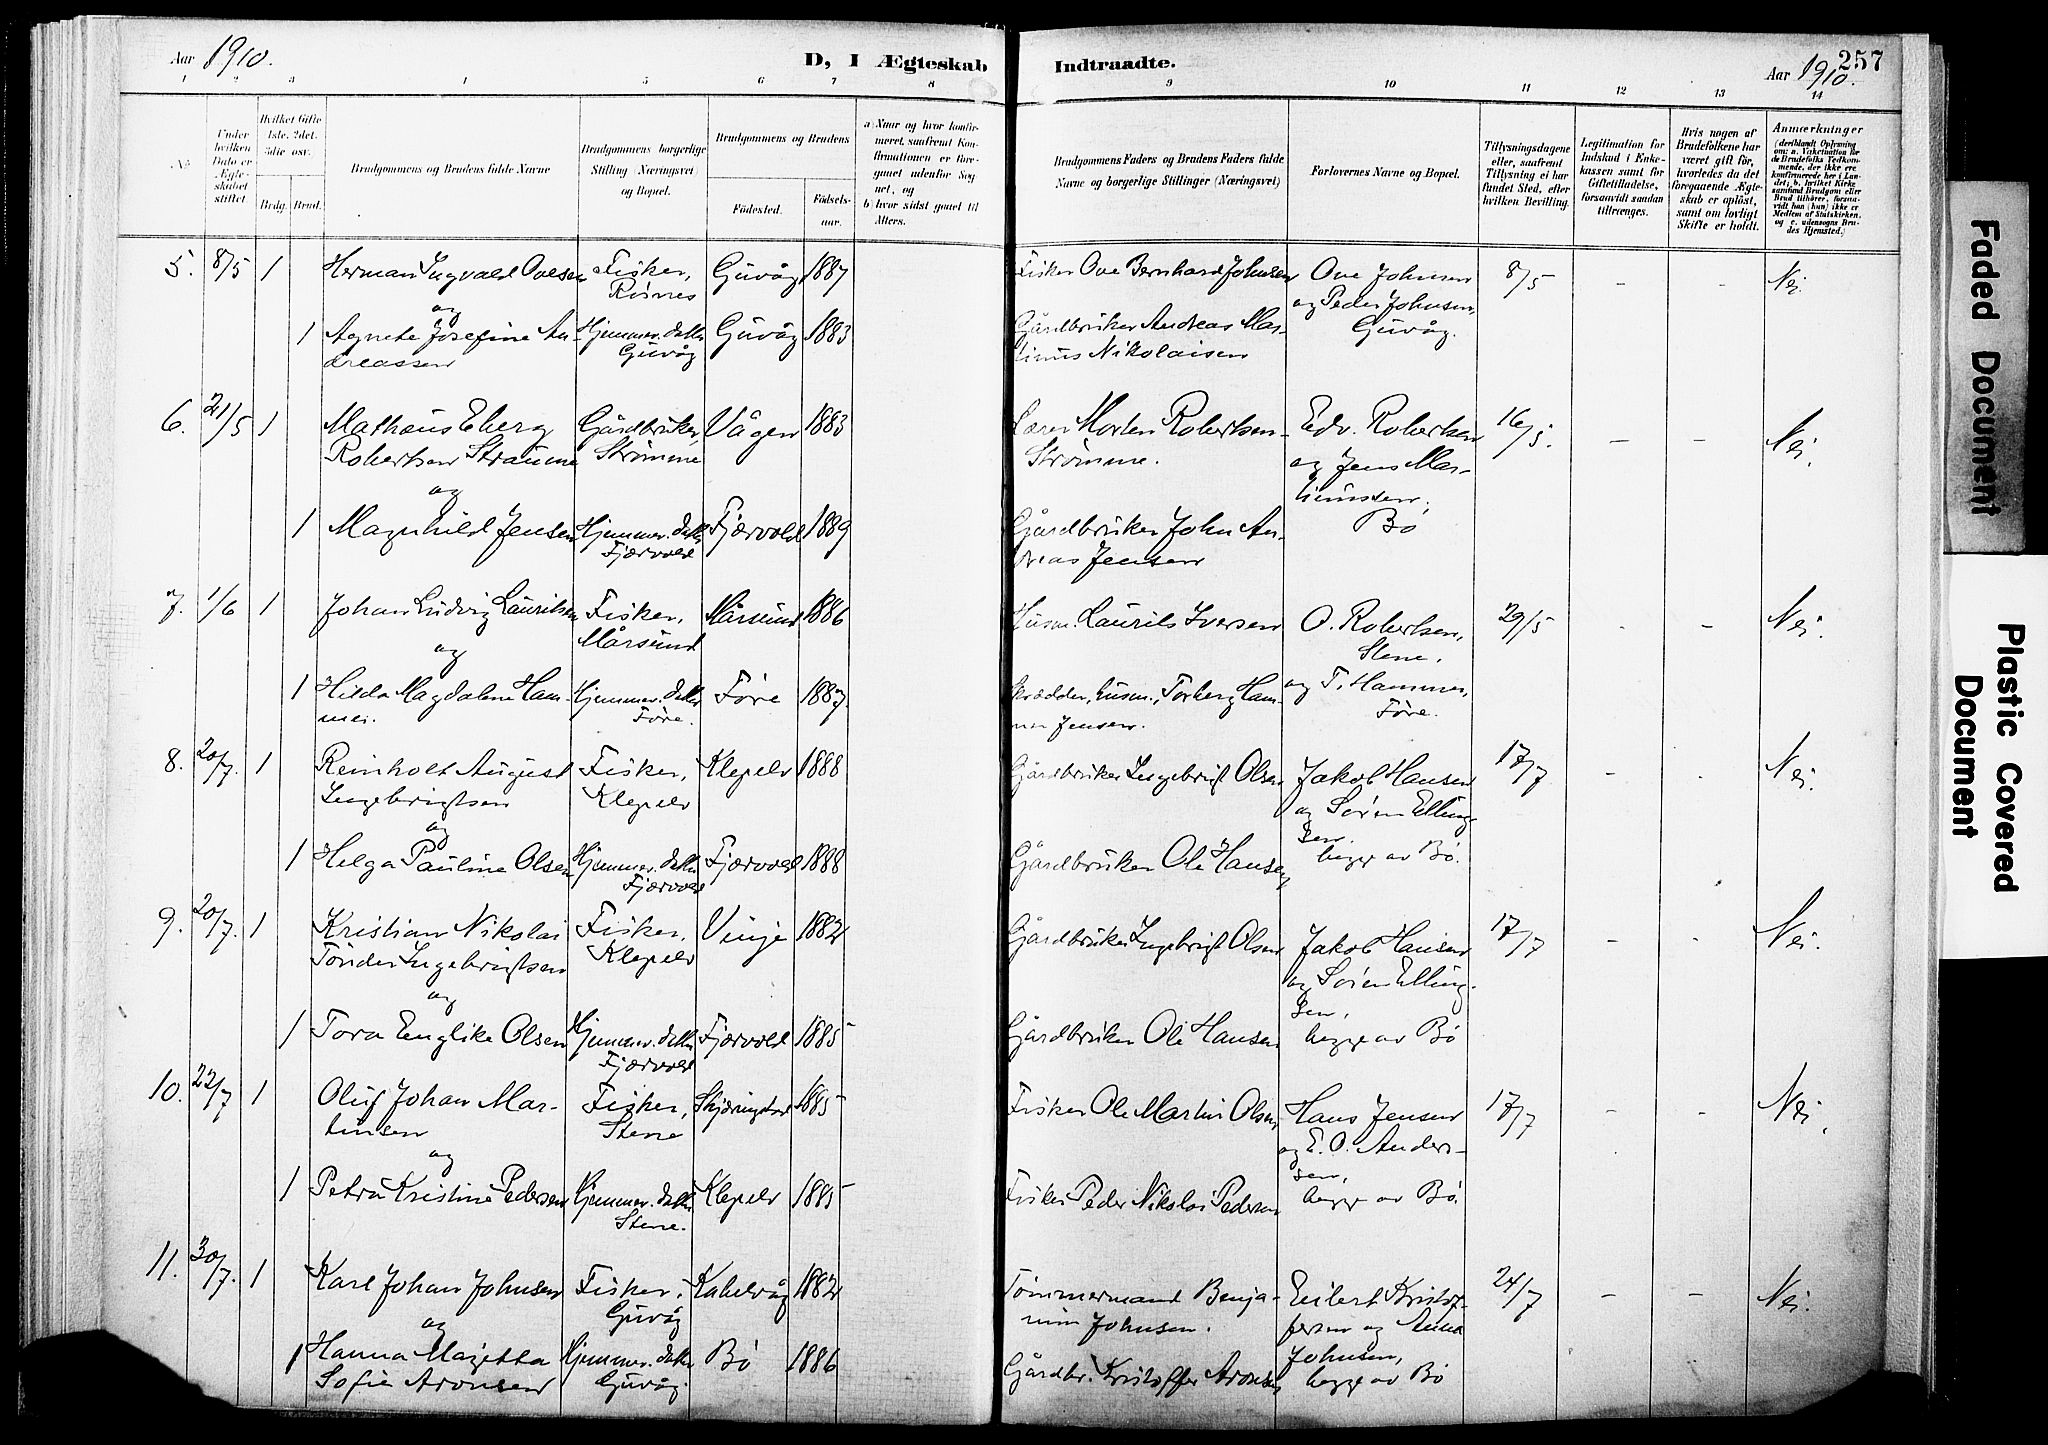 Aar 1910.
D, I Ægteskab Indtraadte.
Aar 1910.
257
1 2 3 4 5 6 7 8 9 10 11 12 13 14
No.
Under hvilken Dato er Ægteskabet stiftet.
Hvilket Gifte 1ste, 2det, 3die osv.
Brdg. Brud.
Brudgommens og Brudens fulde Navne
Brudgommens borgerlige Stilling (Næringsvei) og Bopæl.
Brudgommens og Brudens
Fødested.
Fødselsaar.
a) Naar og hvor konfirmeret, saafremt Konfirmationen er foregaaet udenfor Sognet, og
b) hvor sidst gaaet til Alters.
Brudgommens Faders og Brudens Faders fulde Navne og borgerlige Stillinger (Næringsvei)
Forlovernes Navne og Bopæl.
Tillysningsdagene eller, saafremt Tillysning ei har fundet Sted, efter hvilken Bevilling.
Legitimation for Indskud i Enkekassen samt for Giftetilladelse, forsaavidt saadan tiltrænges.
Hvis nogen af Brudefolkene har været gift før, hvorledes da det foregaaende Ægteskab er opløst, samt om lovligt Skifte er holdt.
Anmærkninger
(deriblandt Oplysning om: a. Vaksination for de Brudefolks Vedkommende, der ikke ere konfirmerede her i Landet; b. hvilket Kirkesamfund Brudgom eller Brud tilhører, forsaavidt han (hun) ikke er Medlem af Statskirken, og c. udensogns Brudes Hjemsted.)
5. 8/5 1 Herman Ingvald Ovesen Fisker, Guvåg 1887 Fisker Ove Bernhard Johnsen Ove Johnsen 8/5 - - Nei.
Risnes og Peder Johnsen,
og Guvåg.
1 Agnete Josefine An- Hjemmev. datter Guvåg 1883 Gårdbruker Andreas Mar-
dreassen Guvåg tinus Nikolaisen
6. 21/5 1 Mathæus Eberg Gårdbruker, Vågen 1883 Lærer Morten Robertsen Edv. Robertsen 16/5. - - Nei.
Robertsen Straume Strømme Strømme. og Jens Mar-
og tinussen,
1 Magnhild Jensen Hjemmev. datter Fjærvold 1889 Gårdbruker John An- Bø
Fjærvold dreas Jensen
7. 1/6 1 Johan Ludvig Lauritsen Fisker, Mårsund 1886 Husm. Laurits Iversen O. Robertsen, 29/5 - - Nei.
Mårsund Stene,
og
1 Hilda Magdalene Ham- Hjemmev. datter Føre 1887 Skrædder, husm., Torberg Ham- og T. Hammer,
mer. Føre. mer Jensen. Føre.
8. 20/7. 1 Reinholt August Fisker, Klepelv 1888 Gårdbruker Ingebrigt Olsen Jakob Hansen 17/7 - - Nei.
Ingebrigtsen Klepelv og Søren Elling-
og sen,
1 Helga Pauline Olsen Hjemmev. datter Fjærvold 1888 Gårdbruker Ole Hansen begge av Bø.
Fjærvold
9. 20/7. 1 Kristian Nikolai Fisker, Vinje 1882 Gårdbruker Ingebrigt Olsen Jakob Hansen 17/7 - - Nei.
Tønder Ingebrigtsen Klepelv og Søren Elling-
og sen,
1 Tora Englike Olsen Hjemmev. datter Fjærvold 1885 Gårdbruker Ole Hansen begge av Bø
Fjærvold
10. 22/7 1 Oluf Johan Mar- Fisker, 1885 Fisker Ole Martin Olsen Hans Jensen 17/7 - - Nei.
tinsen Stene og E. O. Ander-
og sen,
1 Petra Kristine Pedersen Hjemmev. datter Klepelv 1885 Fisker Peder Nikolai Pedersen begge av Bø.
Stene.
11. 30/7. 1 Karl Johan Johnsen Fisker, Kabelvåg 1882 Tømmermand Benja- Eilert Kristof- 24/7 - - Nei.
Guvåg min Johnsen. fersen og Anna
og
1 Hanna Majetta Hjemmev. datter Bø 1886 Gårdbr. Kristoffer Aronsen Johnsen,
Sofie Aronsen Guvåg. begge av Bø
Faded Document
Plastic Covered Document